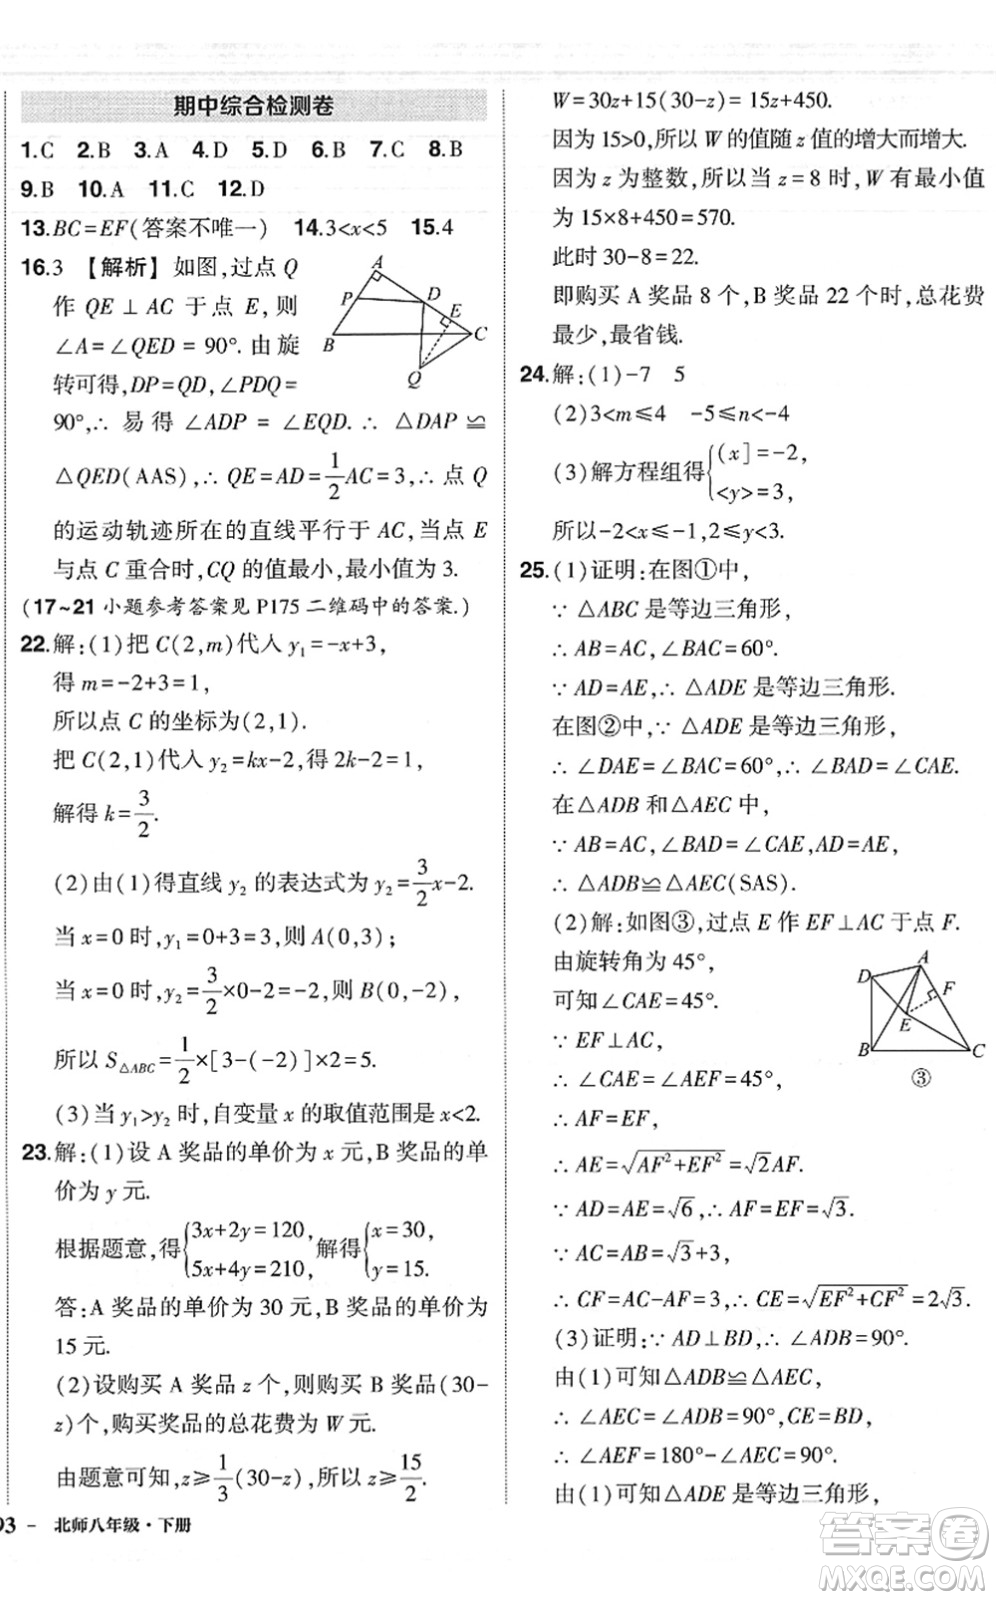 期中综合检测卷
1.C 2.B 3.A 4.D 5.D 6.B 7.C 8.B
9.B 10.A 11.C 12.D
13.BC=EF(答案不唯一) 14.3<x<5 15.4
16.3 【解析】如图,过点 Q
作 QE⊥AC 于点 E,则
∠A=∠QED=90°.由旋
转可得,DP=DQ,∠PDQ=
90°,∴易得∠ADP=∠EQD.∴△DAP≌
△QED(AAS),∴QE=AD=1/2AC=3,∴点 Q
的运动轨迹所在的直线平行于 AC,当点 E
与点 C 重合时,CQ 的值最小,最小值为 3.
(17~21 小题参考答案见 P175 二维码中的答案.)
22.解:(1)把 C(2,m)代入 y₁=-x+3,
得 m=-2+3=1,
所以点 C 的坐标为(2,1).
把 C(2,1)代入 y₂=kx-2,得 2k-2=1,
解得 k=3/2.
(2)由(1)得直线 y₂ 的表达式为 y₂=3/2x-2.
当 x=0 时,y₁=0+3=3,则 A(0,3);
当 x=0 时,y₂=3/2×0-2=-2,则 B(0,-2),
所以 S△ABC=1/2×[3-(-2)]×2=5.
(3)当 y₁>y₂ 时,自变量 x 的取值范围是 x<2.
23.解:(1)设 A 奖品的单价为 x 元,B 奖品的单
价为 y 元.
根据题意,得{3x+2y=120, 5x+4y=210,解得{x=30, y=15.
答:A 奖品的单价为 30 元,B 奖品的单价为
15 元.
(2)设购买 A 奖品 z 个,则购买 B 奖品(30-
z)个,购买奖品的总花费为 W 元.
由题意可知,z≥1/3(30-z),所以 z≥15/2.
93 - 北师八年级·下册
W=30z+15(30-z)=15z+450.
因为 15>0,所以 W 的值随 z 值的增大而增大.
因为 z 为整数,所以当 z=8 时,W 有最小值
为 15×8+450=570.
此时 30-8=22.
即购买 A 奖品 8 个,B 奖品 22 个时,总花费
最少,最省钱.
24.解:(1)-7 5
(2)3<m≤4 -5≤n<-4
(3)解方程组得{(x]=-2, <y>=3,
所以-2<x≤-1,2≤y<3.
25.(1)证明:在图①中,
∵△ABC 是等边三角形,
∴AB=AC,∠BAC=60°.
∵AD=AE,∴△ADE 是等边三角形.
在图②中,∵△ADE 是等边三角形,
∴∠DAE=∠BAC=60°,∴∠BAD=∠CAE.
在△ADB 和△AEC 中,
∵AB=AC,∠BAD=∠CAE,AD=AE,
∴△ADB≌△AEC(SAS).
(2)解:如图③,过点 E 作 EF⊥AC 于点 F.
由旋转角为 45°,
可知∠CAE=45°.
∵EF⊥AC,
∴∠CAE=∠AEF=45°,
∴AF=EF,
∴AE=√(AF²+EF²)=√2AF.
∵AD=AE=√6,∴AF=EF=√3.
∵AC=AB=√3+3,
∴CF=AC-AF=3,∴CE=√(EF²+CF²)=2√3.
(3)证明:∵AD⊥BD,∴∠ADB=90°.
由(1)可知△ADB≌△AEC,
∴∠AEC=∠ADB=90°,CE=BD,
∴∠AEF=180°-∠AEC=90°.
由(1)可知△ADE 是等边三角形,
A
P
D
E
B
C
Q
A
D
F
E
B
C
③
答案圈
MXQE.COM